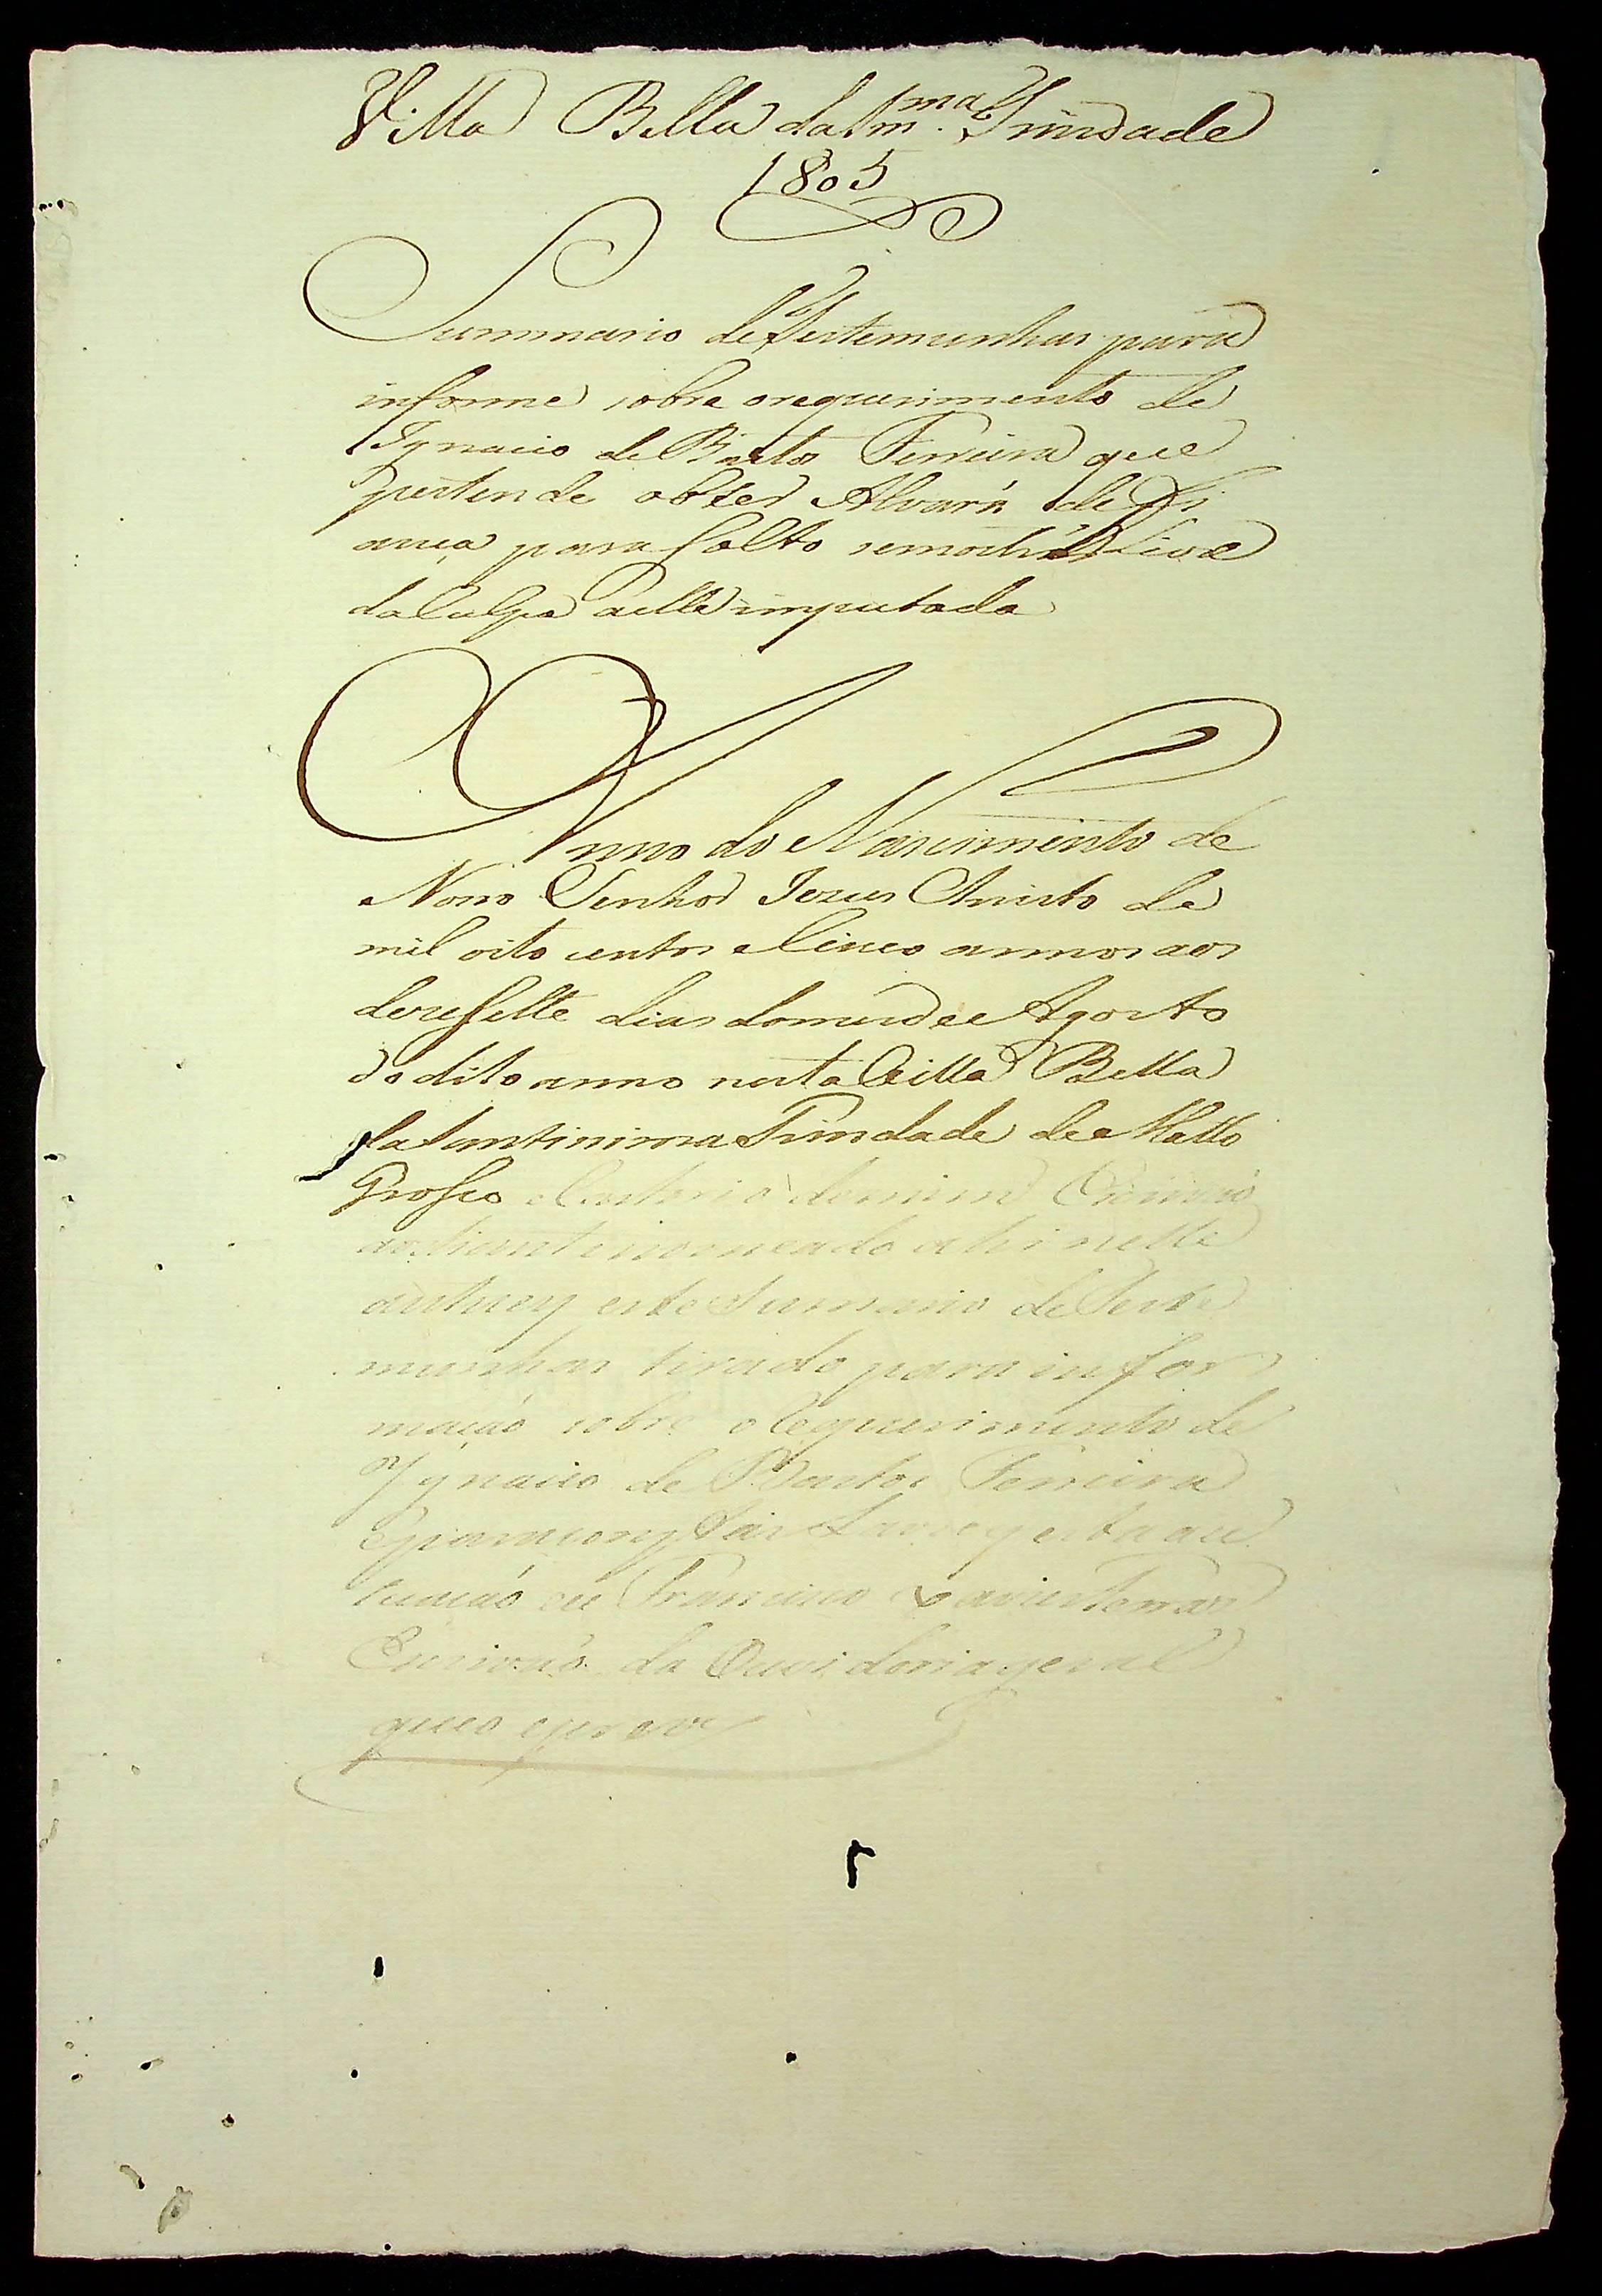 Villa Bella da Smᵐᵃ. Trindade
1805
Summario de Testemunhas para
informe sobre orequerimento de
Ignacio de Bastos Ferreira que
pertende obter Alvará de Fi
ança para Solto semostrar Livre
daCulpa aelle imputada
Anno do Nascimento de
Nosso Senhor Jezus Christo de
mil oito centos eCinco annos aos
dezeSette dias domes de Agosto
do dito anno nesta Villa Bella
daSantissima Trindade de Matto
Grosso eCartorio demim Escrivaõ
aodiante nomeado ahi nelle
authuey este Sumario de Teste
munhas tirado para infor
maçaõ sobre o Requerimento de
Ignacio de Bastos Ferreira
eparaconstar Lavrey esta au
tuaçaõ eu Francisco Xavier
Escrivaõ da Ouvidoria geral
queo escrevy